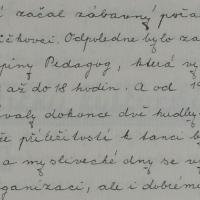 í začal zábavný počas
ičkovci. Odpoledne bylo za
piny Pedagog, která vy
až do 18 hodin. A od 19
valy dokonce dvě hudby
že příležitostí k tanci b
a myslivecké dny se vy
ganizaci, ale i dobrému